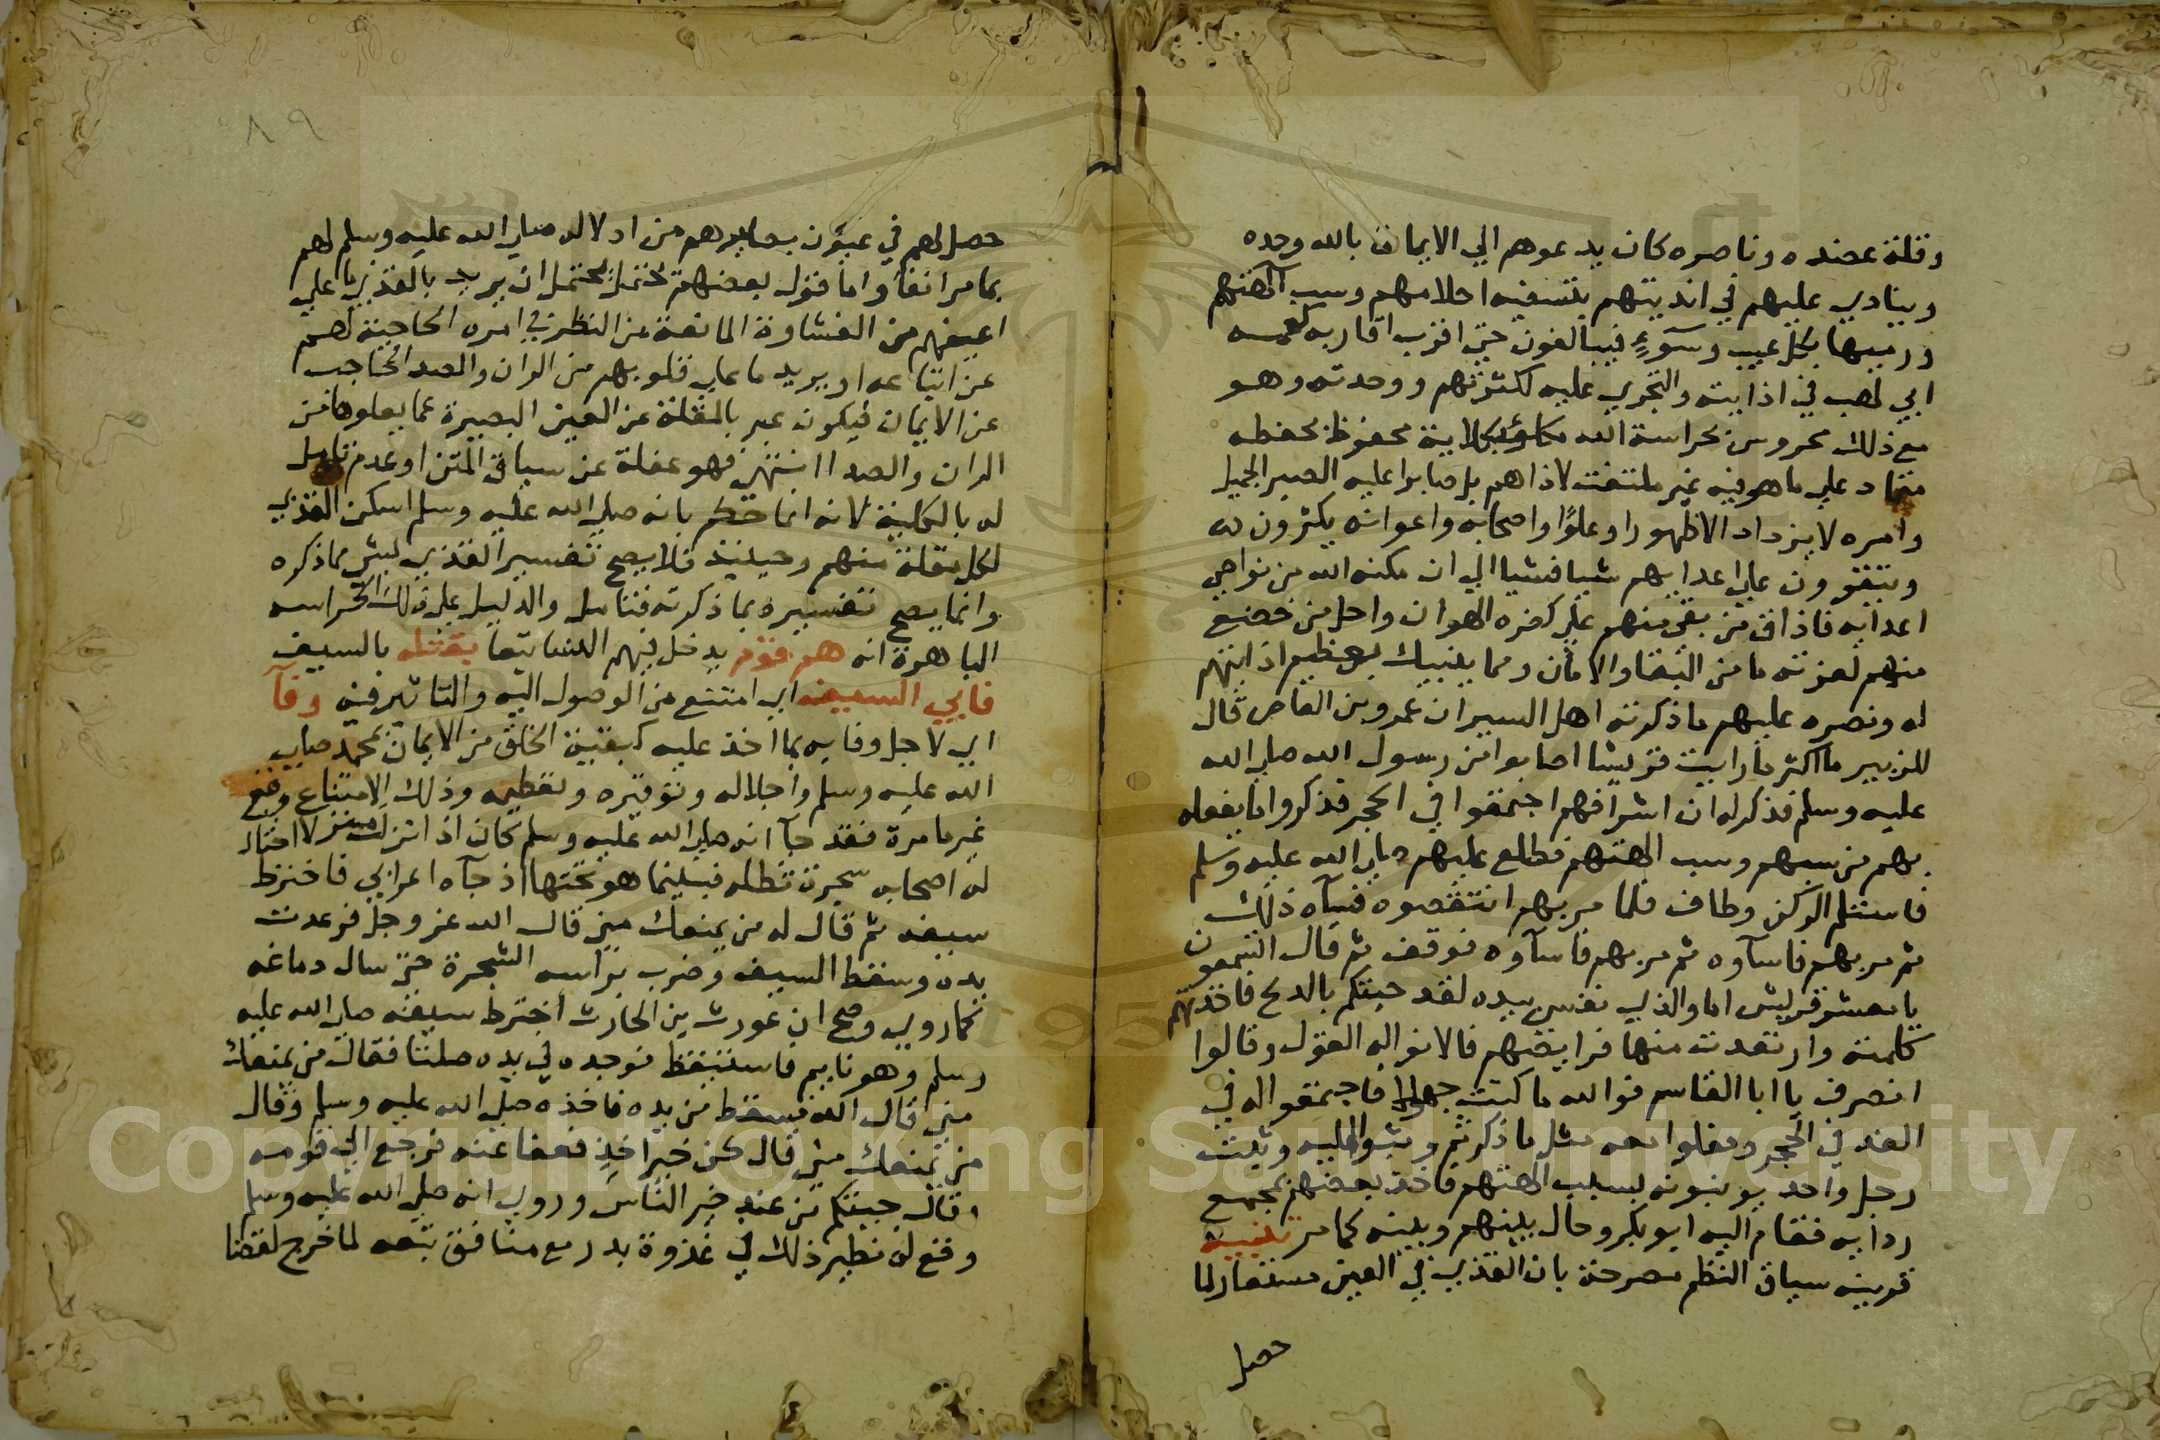 وقلة عضده وناصره كان يدعوهم الي الايمان بالله وحده
وينادي عليهم في انديتهم بتسفيه احلامهم وسب آلهتهم
ورميها بكل عيب وسوءٍ فيبالغون حتي اقرب اقاربه كعمه
ابي لهب في اذايته والتجري عليه لكثرتهم ووحدته وهو
مع ذلك محروس بحراسة الله مكلوٌ بكلاية محفوظ بحفظه
متماد علي ما هو فيه غير ملتفت لاذاهم بل صابرا عليه الصبر الجميل
وامره لا يزداد الا ظهورا وعلوًا واصحابه واعوانه يكثرون له
ويتقوون علي اعدايهم شيا فشيا الي ان مكنه الله من نواصي
اعدايه فاذاق من بقي منهم علي كفره الهوان واحل من خضع
منهم لعزته مامن البقا والامان ومما ينبيك بعظيم اذايتهم
له ونصره عليهم ما ذكرته اهل السير ان عمرو بن العاص قال
للزبير ما اكثر ما رايت قريشا اصابوا من رسول الله صلي الله
عليه وسلم فذكر له ان اشرافهم اجتمعوا في الحجر فذكروا ما يفعله
بهم من سبهم وسب الهتهم فطلع عليهم صلي الله عليه وسلم
فاستلم الركن وطاف فلما مر بهم انتقصوه فساه ذلك
ثم مر بهم فاسآوه ثم مر بهم فاسآوه فوقف ثم قال اتسمعون
يا معشر قريش اما والذي نفسي بيده لقد جيتكم بالدبح فاخذتهم
كلمته وارتعدت منها فرايصهم فالانوا له القول وقالوا
انصرف يا ابا القاسم فوالله ما كنت جهولا فاجتمعوا له في
الغد في الحجر وفعلوا معه مثل ما ذكر ثم وثبوا اليه وثبت
رجل واحد يونبونه بسبب الهتهم فاخذ بعضهم بمجمع
ردايه فقام اليه ابو بكر وحال بينهم وبينه كما مر تنبيه
قرينه سياق النظم مصرحة بان القذي في العين مستعار لما
حصل
٨٩
حصل لهم في عيون بصايرهم من ادلاله صلي الله عليه وسلم لهم
بما مر انفا واما قول بعضهم يحتمل ان يريد بالقذي ما علي
اعينهم من الغشاوة المانعة من النظر في امره الحاجبة لهم
عن اتباعه او يريد ما علي قلوبهم من الران والصد الحاجب
عن الايمان فيكون عبر بالمقلة عن العين البصيرة عما يعلوها من
الران والصدا انتهي فهو غفلة عن سياق المتن او عدم تامل
له بالكلية لانه انما حكم بانه صلي الله عليه وسلم اسكن القذي
لكل مقلة منهم وحينيذ فلا يصح تفسير القذي بشي مما ذكره
وانما يصح تفسيره بما ذكرته فتامل والدليل علي تلك الحراسه
الباهرة انه هم قوم يدخل فيهم النسا تبعا بقتله بالسيف
فابي السيف اي امتنع من الوصول اليه والتاثير فيه وفآ
اي لاجل وفايه بما اخذ عليه كبقية الخلق من الايمان بمحمد صلي
الله عليه وسلم واجلاله وتوقيره وتعظيمه وذلك الامتناع وقع
غير ما مرة فقد جآ انه صلي الله عليه وسلم كان اذا نزل منزلا اختار
له اصحابه شجرة تظله فبينما هو تحتها اذ جآه اعرابي فاخترط
سيفه ثم قال له من يمنعك مني قال الله عز وجل فرعدت
يده وسقط السيف وضرب براسه الشجرة حتي سال دماغه
كما روي وصح ان غورث بن الحارث اخترط سيفه صلي الله عليه
وسلم وهو نايم فاستيقظ فوجده في يده صلتا فقال من يمنعك
مني قال الله فسقط من يده فاخذه صلي الله عليه وسلم وقال
من يمنعك مني قال كن خير اخذ فعفا عنه فرجع الي قومه
وقال جيتكم من عند خير الناس وروي انه صلي الله عليه وسلم
وقع له نظير ذلك في غزوة بدر مع منافق تبعه لما خرج لقضا